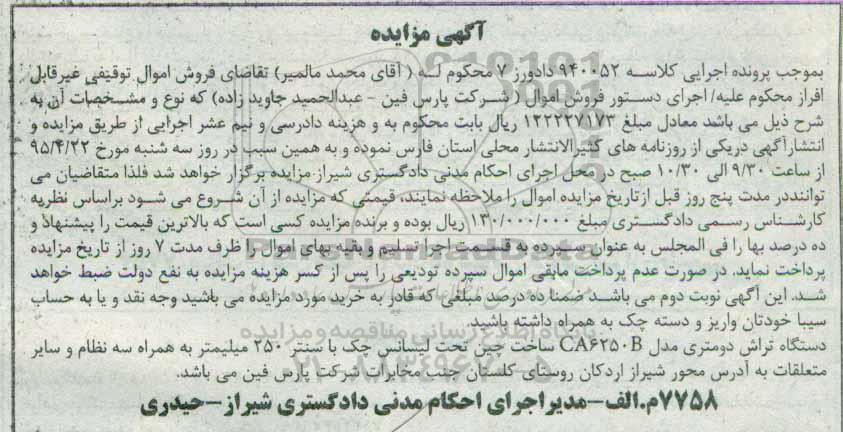 آگهی مزایده
بموجب پرونده اجرایی کلاسه ۹۴۰۰۵۲ دادورز ۷ محکوم له ( آقای محمد مالمیر) تقاضای فروش اموال توقیفی غیرقابل
افراز محکوم علیه/ اجرای دستور فروش اموال ( شرکت پارس فین - عبدالحمید جاوید زاده) که نوع و مشخصات آن به
شرح ذیل می باشد معادل مبلغ ۱۲۲۲۲۷۱۷۳ ریال بابت محکوم به و هزینه دادرسی و نیم عشر اجرایی از طریق مزایده و
انتشارآگهی دریکی از روزنامه های کثیرالانتشار محلی استان فارس نموده و به همین سبب در روز سه شنبه مورخ ۹۵/۴/۲۲
از ساعت ۹/۳۰ الی ۱۰/۳۰ صبح در محل اجرای احکام مدنی دادگستری شیراز مزایده برگزار خواهد شد فلذا متقاضیان می
توانند در مدت پنج روز قبل ازتاریخ مزایده اموال را ملاحظه نمایند، قیمتی که مزایده از آن شروع می شود براساس نظریه
کارشناس رسمی دادگستری مبلغ ۱۳۰/۰۰۰/۰۰۰ ریال بوده و برنده مزایده کسی است که بالاترین قیمت را پیشنهاد و
ده درصد بها را فی المجلس به عنوان سپرده به قسمت اجرا تسلیم و بقیه بهای اموال را ظرف مدت ۷ روز از تاریخ مزایده
پرداخت نماید. در صورت عدم پرداخت مابقی اموال سپرده تودیعی را پس از کسر هزینه مزایده به نفع دولت ضبط خواهد
شد. این آگهی نوبت دوم می باشد ضمنا ده درصد مبلغی که قادر به خرید مورد مزایده می باشید وجه نقد و یا به حساب
سیبا خودتان واریز و دسته چک به همراه داشته باشید.
دستگاه تراش دومتری مدل CA۶۲۵۰B ساخت چین تحت لیسانس چک با سنتر ۲۵۰ میلیمتر به همراه سه نظام و سایر
متعلقات به آدرس محور شیراز اردکان روستای گلستان جنب مخابرات شرکت پارس فین می باشد.
۷۷۵۸/م.الف-مدیراجرای احکام مدنی دادگستری شیراز-حیدری
ParsNamadData
پایگاه اطلاع رسانی مناقصه و مزایده